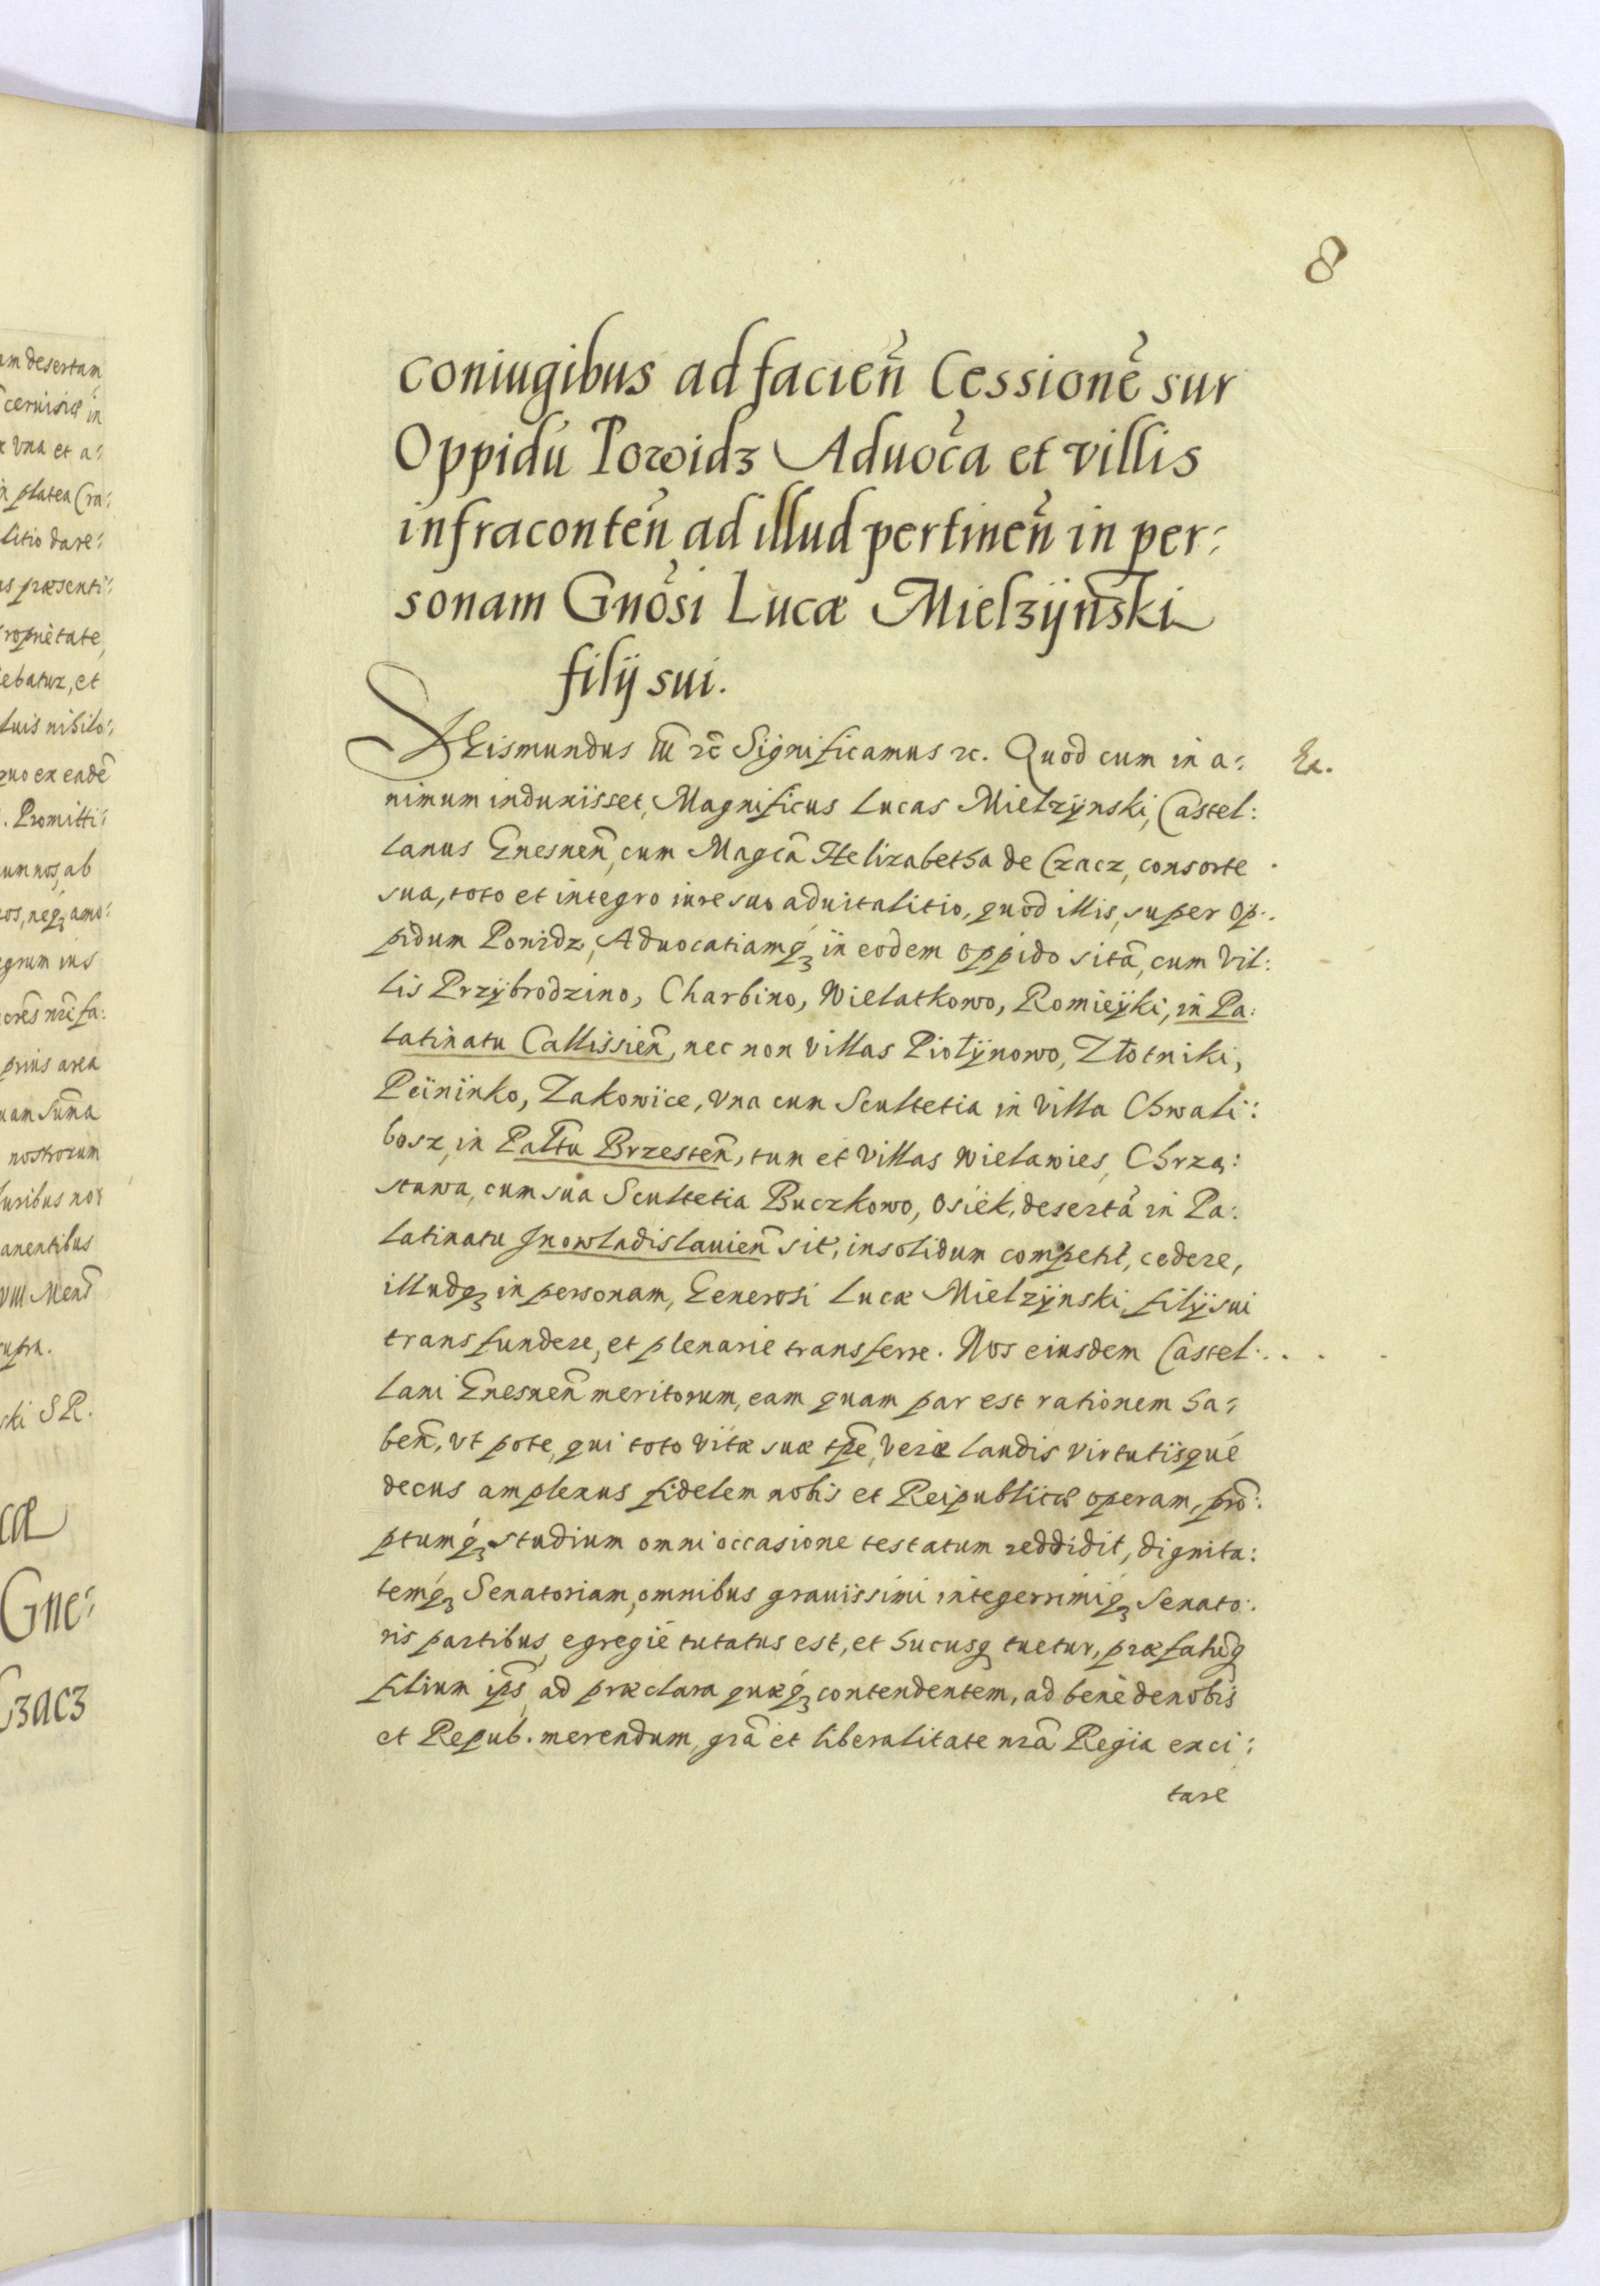 am desertam
cervisiæ in
x Vna et a:
in platea Cra:
litio dare:
as præsenti:
roprietate,
ebatur, et
luis nihilo:
quo ex eadē
. Promitti:
um nos, ab
os, neqȝ amo:
egrum ius
cres nře fa:
prius area
uam Sum̄a
nostrorum
luribus no:
anentibus
VIII Mens̄
supra.
ski SR.
Gne:
Czacz
8
coniugibus ad facien̄ Cessionē sur
Oppidú Powidz Aduoc̄a et villis
infraconten̄ ad illud pertinen̄ in per:
sonam Gnōsi Lucæ Mielzÿnski
filij sui.
SGismundus III rc̄ Significamus rc. Quod cum in a:
Ex.
nimum induxisset, Magnificus Lucas Mielzÿnski, Castel:
lanus Gnesnen̄, cum Magc̄a Helizabetha de Czacz, consorte
sua, toto et integro iure suo aduitalitio, quod illis, super Op:
pidum Powidz, Aduocatiamqȝ in eodem oppido sitā, cum Vil:
lis Przÿbrodzino, Charbino, Wielatkowo, Romieÿki, in Pa:
latinatu Callissien̄, nec non villas Piotÿnowo, Złotniki,
Peininko, Zakowice, Vna cum Scultetia in Villa Chwali:
bosz, in Paltu Brzesten̄, tum et Villas Wielawies, Chrzą:
stawa, cum sua Scultetia Buczkowo, Osiek, desertā in Pa:
latinatu Inowladislauien̄ sit, insolidum competit, cedere,
illudqȝ in personam, Generosi Lucæ Mielzÿnski, filij sui
transfundere, et plenarie transferre. Nos eiusdem Castel:
lani Gnesnen̄ meritorum, eam quam par est rationem ha:
ben̄, vt pote, qui toto vitæ suæ tp̄e, veræ laudis virtutisqué
decus amplexus fidelem nobis et Reipublicæ operam, prō:
ptumqȝ studium omni occasione testatum reddidit, dignita:
temqȝ Senatoriam, omnibus grauissimi integerrimiqȝ Senato:
ris partibus, egregiè tutatus est, et hucusq tuetur, præfatūq
filium ip̄s, ad præclara quæqȝ contendentem, ad benè de nobis
et Repub. merendum, gr̄a et liberalitate nr̄a Regia exci:
tare